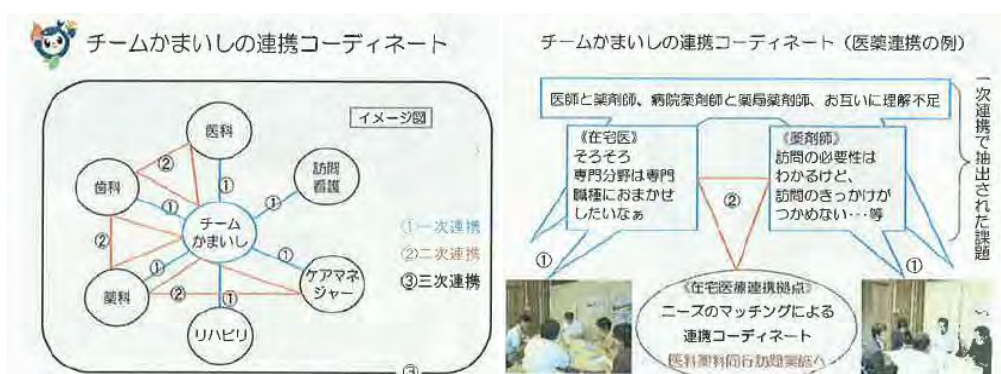 チームかまいしの連携コーディネート
イメージ図
医科
②
歯科
①
訪問
看護
①
①
チーム
かまいし
②
①
①
薬科
②
①
ケアマネ
ジャー
リハビリ
①一次連携
②二次連携
③三次連携
③
チームかまいしの連携コーディネート（医薬連携の例）
医師と薬剤師、病院薬剤師と薬局薬剤師、お互いに理解不足
《在宅医》
そろそろ
専門分野は専門
職種におまかせ
したいなぁ
《薬剤師》
訪問の必要性は
わかるけど、
訪問のきっかけが
つかめない…等
②
①
①
一次連携で抽出された課題
《在宅医療連携拠点》
ニーズのマッチングによる
連携コーディネート
医科薬科同行訪問実施へ